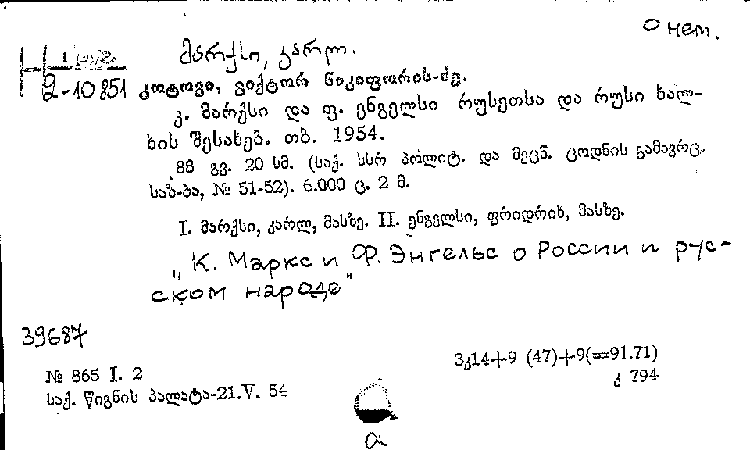 О нем.
მარქსი, კარლ.
2-10851
კოტოვი, ვიქტორ ნიკიფორის-ძე.
კ. მარქსი და ფ. ენგელსი რუსეთსა და რუსი ხალ-
ხის შესახებ. თბ. 1954.
88 გვ. 20 სმ. (საქ. სსრ პოლიტ. და მეცნ. ცოდნის გამავრც.
საზ-ბა, № 51-52). 6.000 ც. 2 მ.
I. მარქსი, კარლ, მასზე. II. ენგელსი, ფრიდრიხ, მასზე.
„К. Маркс и Ф. Энгельс о России и рус-
ском народе"
39687
№ 865 I. 2
საქ. წიგნის პალატა-21.V. 54
3კ14+9 (47)+9(==91.71)
კ 794